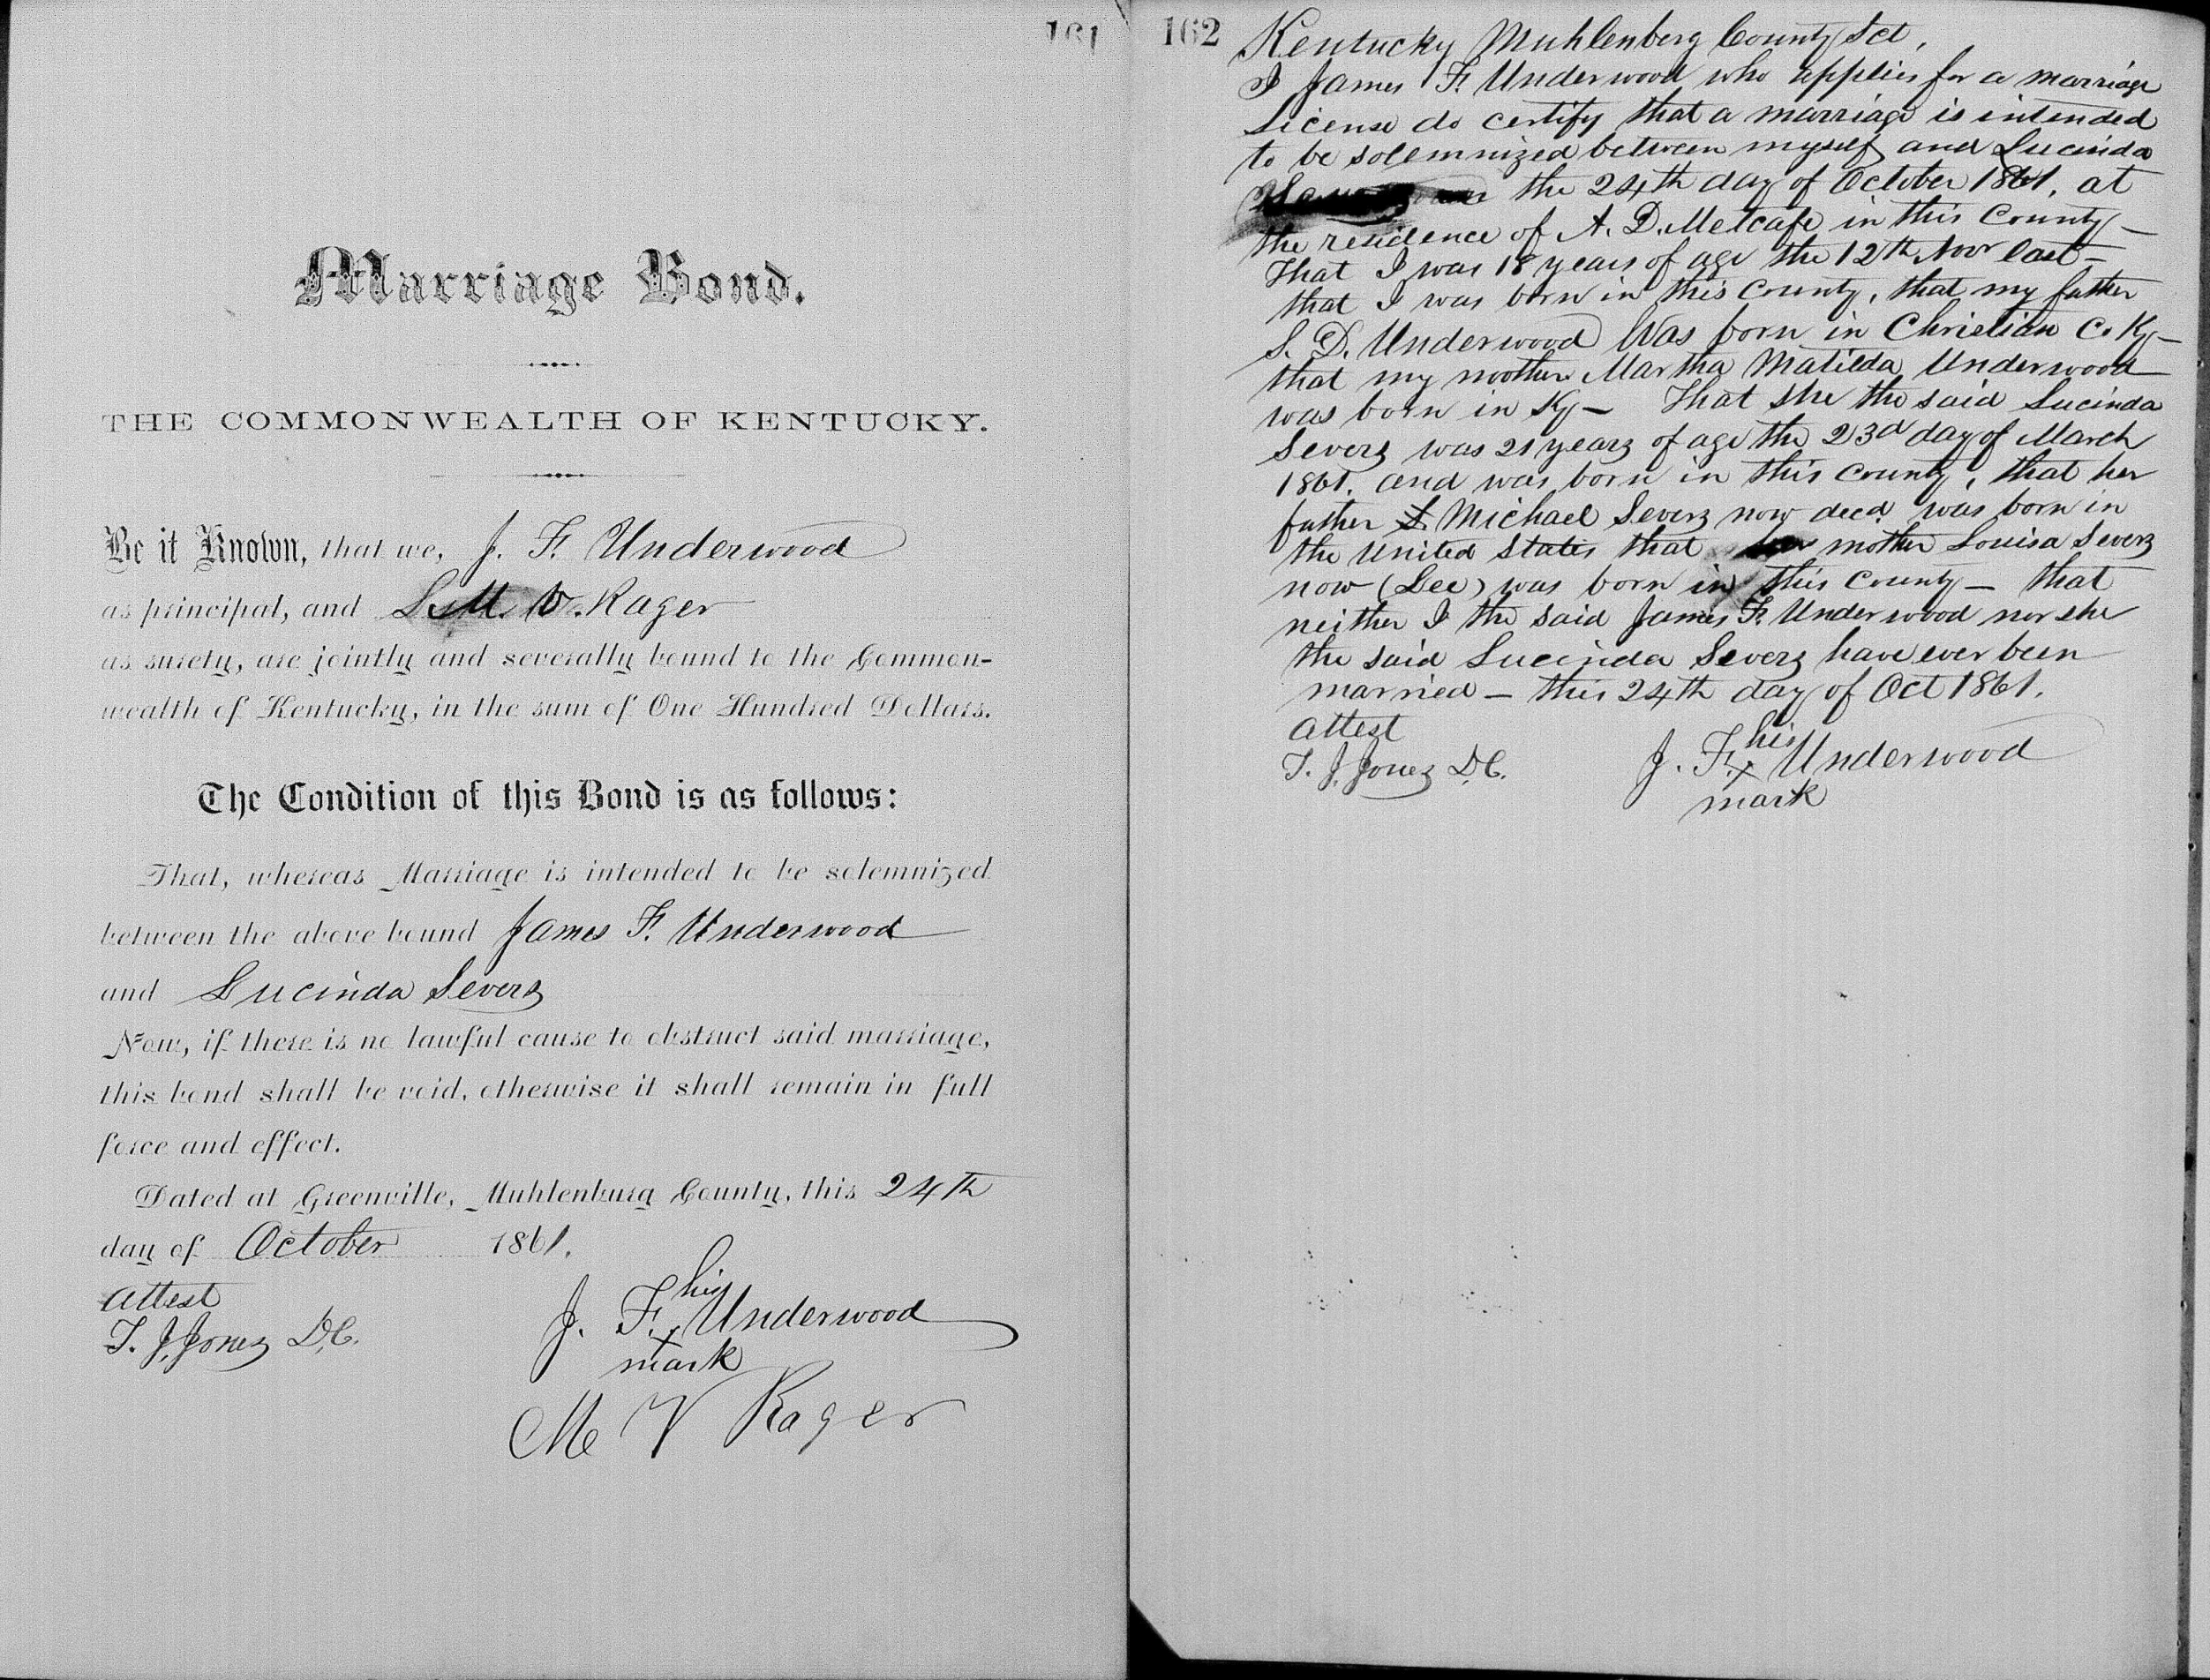 161
Marriage Bond.
THE COMMONWEALTH OF KENTUCKY.
Be it Known, that we, J. F. Underwood
as principal, and M. V. Rager
as surety, are jointly and severally bound to the Common-
wealth of Kentucky, in the sum of One Hundred Dollars.
The Condition of this Bond is as follows:
That, whereas Marriage is intended to be solemnized
between the above bound James F. Underwood
and Lucinda Severs
Now, if there is no lawful cause to obstruct said marriage,
this bond shall be void, otherwise it shall remain in full
force and effect.
Dated at Greenville, Muhlenburg County, this 24th
day of October 1861.
attest
T. J. Jones D.C.
his
J. F. x Underwood
mark
M V Rager
162
Kentucky Muhlenberg County Sct,
I James F. Underwood who applies for a marriage
License do certify that a marriage is intended
to be solemnized between myself and Lucinda
the 24th day of October 1861. at
the residence of A. D. Metcafe in this County —
That I was 18 years of age the 12th Nov last —
that I was born in this County, that my father
S. D. Underwood Was born in Christian C. Ky —
that my mother Martha Matilda Underwood
was born in Ky — That she the said Lucinda
Severs was 21 years of age the 23d day of March
1861. and was born in this County, that her
father Michael Severs now decd was born in
the United States that mother Louisa Severs
now (Lee) was born in this County — that
neither I the said James F. Underwood nor she
the said Lucinda Severs have ever been
married — this 24th day of Oct 1861.
attest
T. J. Jones D.C.
his
J. F. x Underwood
mark